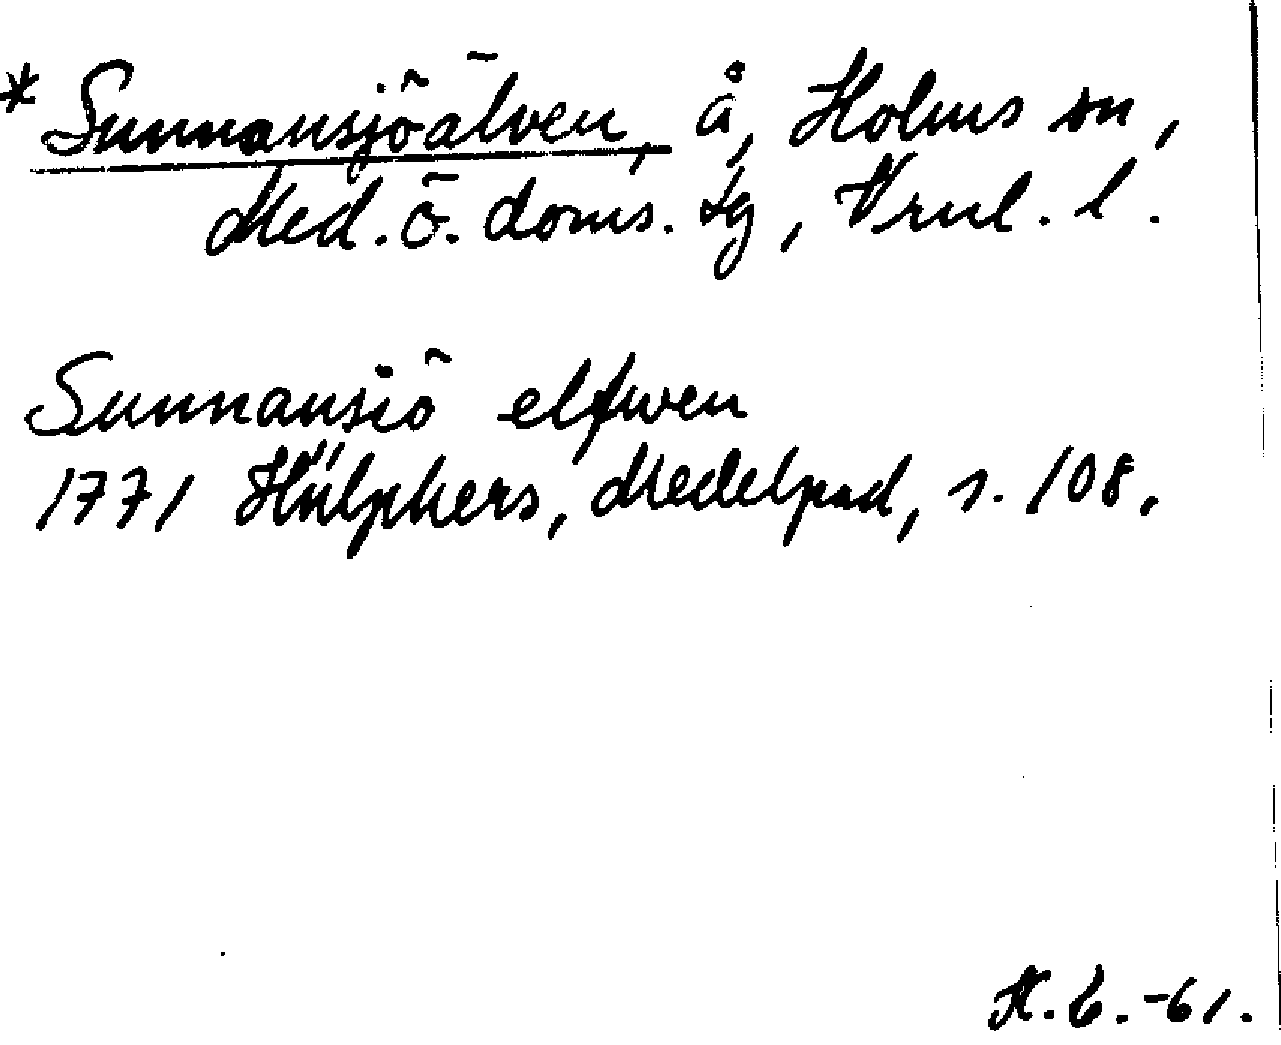 * Sunnansjöälven, å, Holms sn,
Med. ö. doms. tg, Vrnl. l.
Sunnansiö elfwen
1771 Hülphers, Medelpad, s. 108.
K. C. -61.